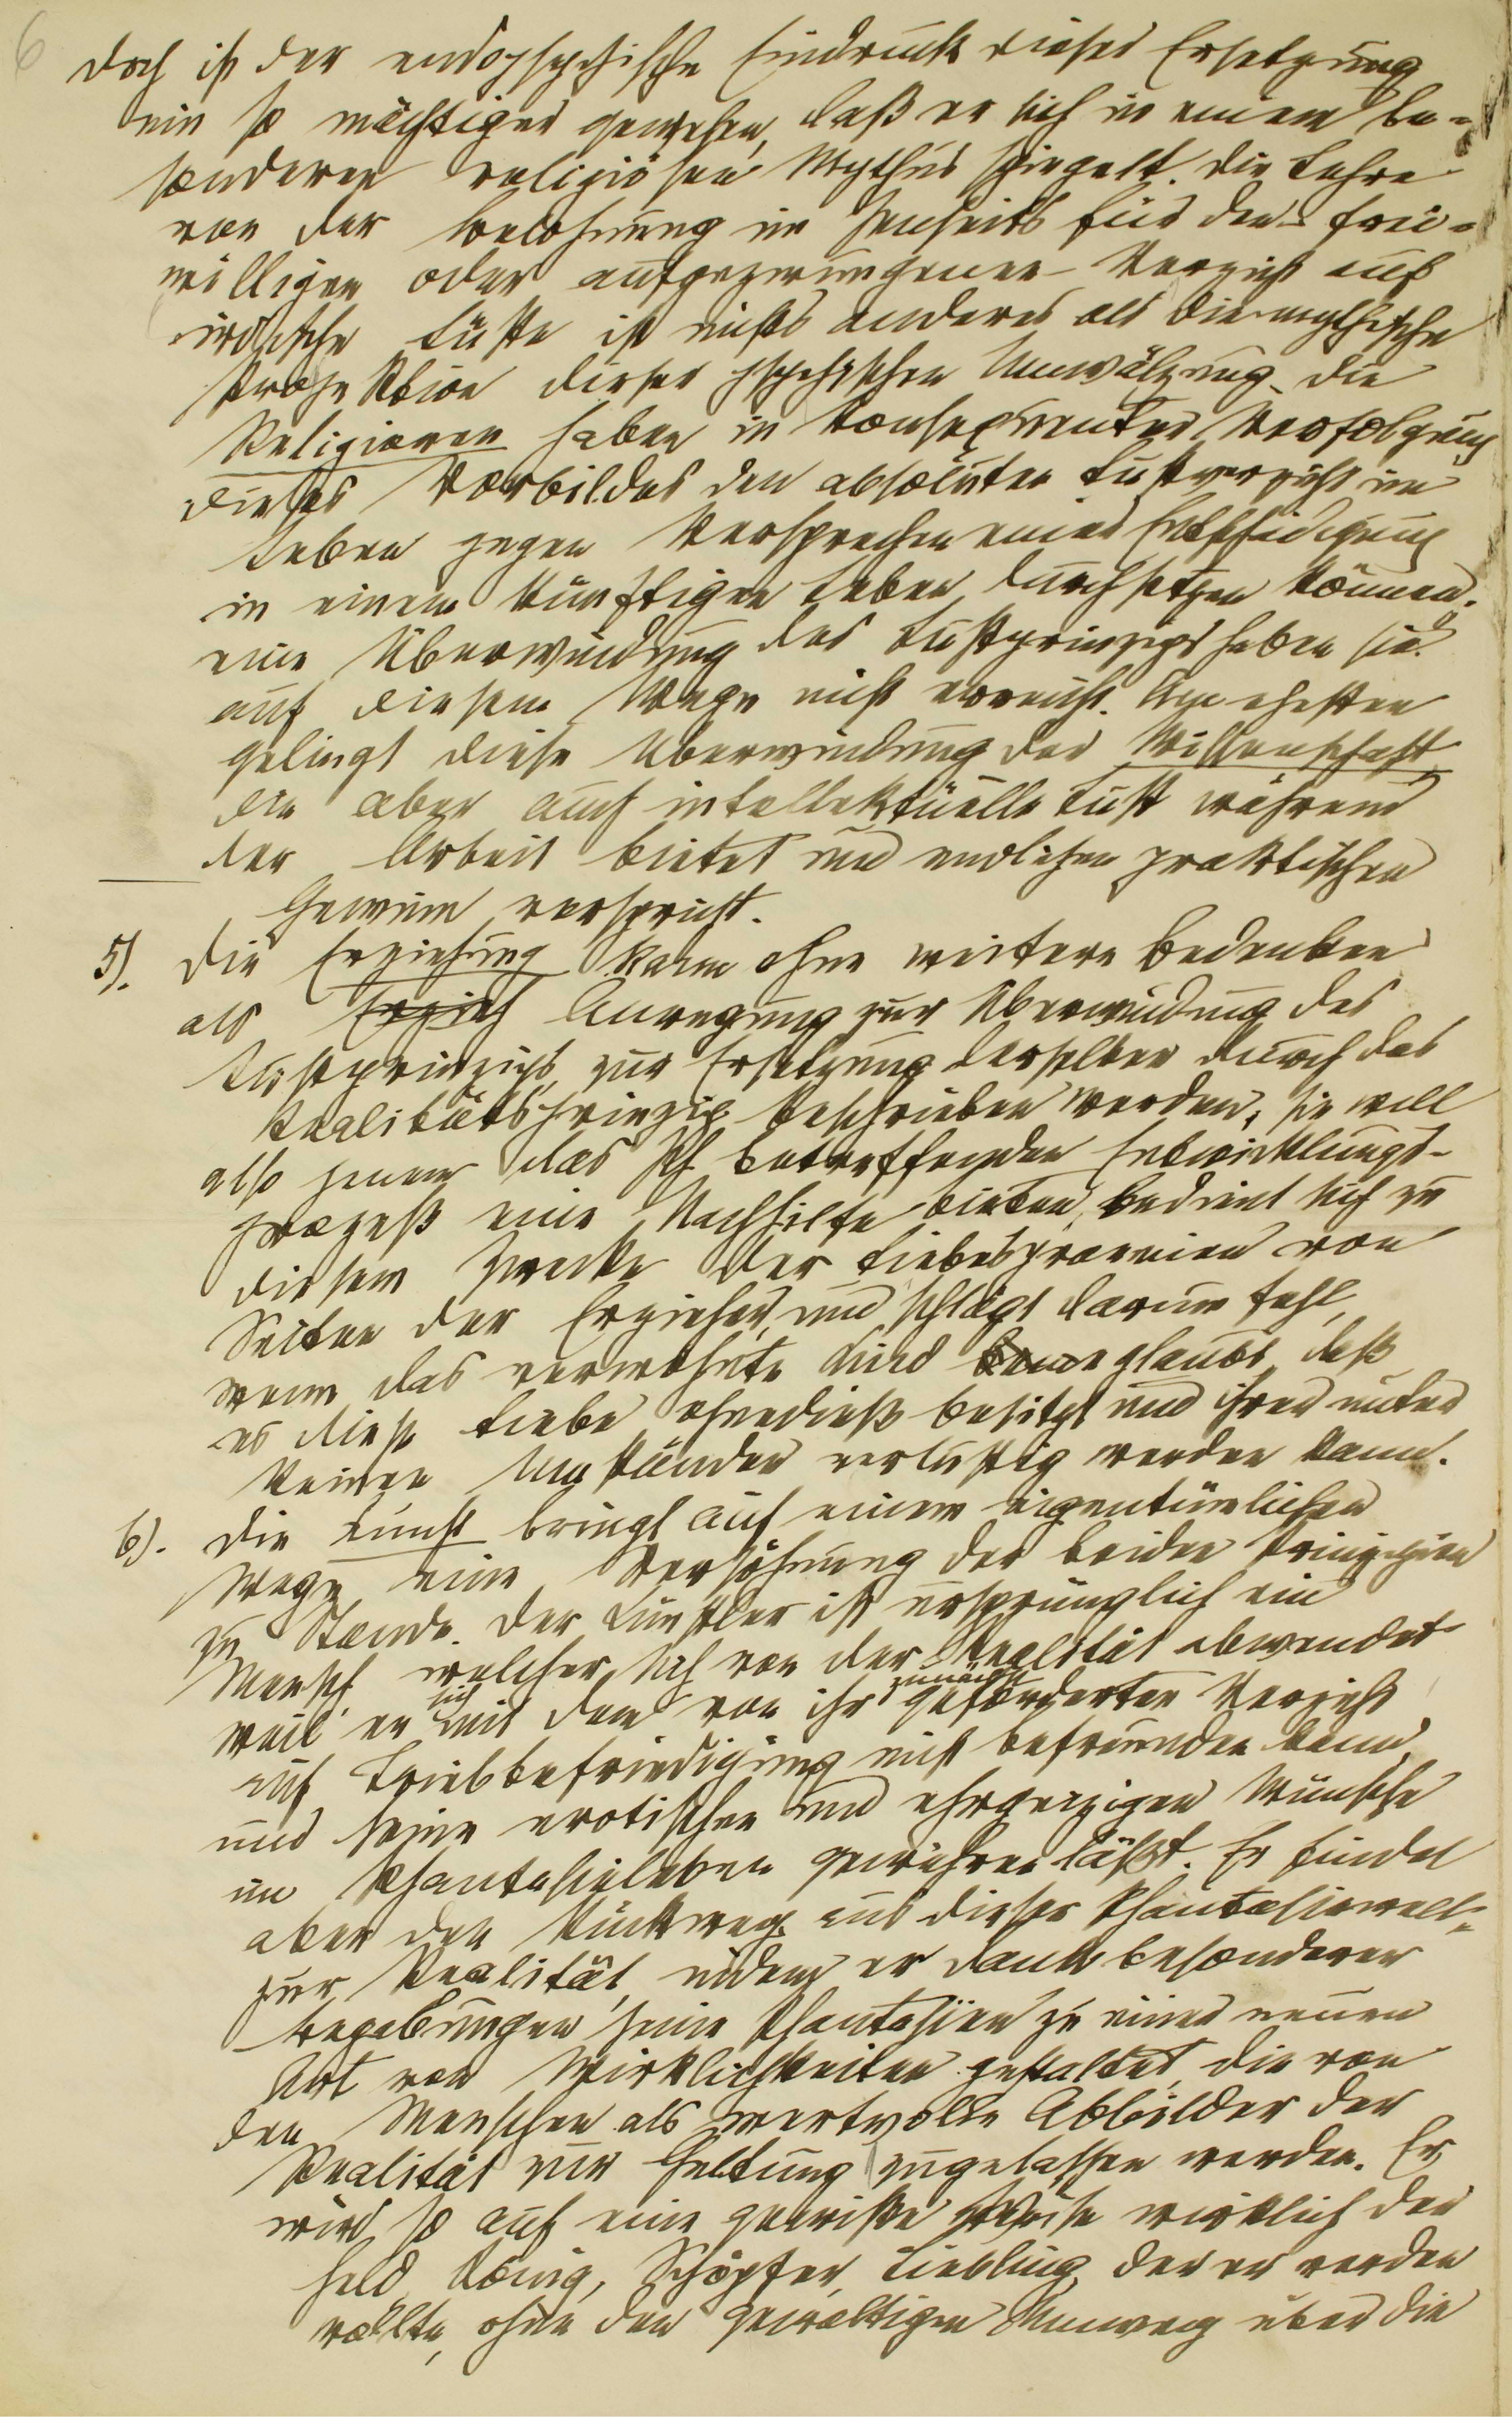 6
Doch ist der endopsychische Eindruck dieser Ersetzung
ein so mächtiger gewesen, daß er sich in einem be-
sonderen religiösen Mythus spiegelt. Die Lehre
von der Belohnung im Jenseits für den – frei-
willigen oder aufgezwungenen – Verzicht auf
irdische Lüste ist nichts anderes als die mythische
Projektion dieser psychischen Umwälzung. Die
Religionen haben in konsequenter Verfolgung
dieses Vorbildes den absoluten Lustverzicht im
Leben gegen Versprechen einer Entschädigung
in einem künftigen Leben durchsetzen können;
eine Überwindung des Lustprinzips haben sie
auf diesem Wege nicht erreicht. Am ehesten
gelingt diese Überwindung der Wissenschaft,
die aber auch intellektuelle Lust während
der Arbeit bietet und endlichen praktischen
Gewinn verspricht.
5). Die Erziehung kann ohne weitere Bedenken
als Erzieh Anregung zur Überwindung des
Lustprinzips, zur Ersetzung desselben durch das
Realitätsprinzip beschrieben werden; sie will
also jenem das Ich betreffenden Entwicklungs-
prozeß eine Nachhilfe bieten, bedient sich zu
diesem Zwecke der Liebesprämien von
Seiten der Erzieher, und schlägt darum fehl,
wenn das verwöhnte Kind glaubt, daß
es diese Liebe ohnedieß besitzt und ihrer unter
keinen Umständen verlustig werden kann.
6). Die Kunst bringt auf einem eigentümlichen
Wege eine Versöhnung der beiden Prinzipien
zu Stande. Der Künstler ist ursprünglich ein
Mensch, welcher sich von der Realität abwendet,
weil er sich mit dem von ihr zunächst geforderten Verzicht
auf Triebbefriedigung nicht befreunden kann,
und seine erotischen und ehrgeizigen Wünsche
im Phantasieleben gewähren läßt. Er findet
aber den Rückweg aus dieser Phantasiewelt
zur Realität, indem er dank besonderer
Begabungen seine Phantasien zu einer neuen
Art von Wirklichkeiten gestaltet, die von
den Menschen als wertvolle Abbilder der
Realität zur Geltung zugelassen werden. Er
wird so auf eine gewisse Weise wirklich der
Held, König, Schöpfer, Liebling, der er werden
wollte, ohne den gewaltigen Umweg über die